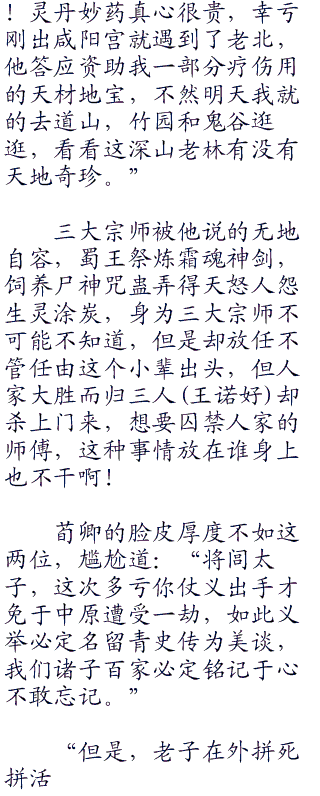 ！灵丹妙药真心很贵，幸亏
刚出咸阳宫就遇到了老北，
他答应资助我一部分疗伤用
的天材地宝，不然明天我就
的去道山，竹园和鬼谷逛
逛，看看这深山老林有没有
天地奇珍。”
三大宗师被他说的无地
自容，蜀王祭炼霜魂神剑，
饲养尸神咒蛊弄得天怒人怨
生灵涂炭，身为三大宗师不
可能不知道，但是却放任不
管任由这个小辈出头，但人
家大胜而归三人(王诺好)却
杀上门来，想要囚禁人家的
师傅，这种事情放在谁身上
也不干啊！
荀卿的脸皮厚度不如这
两位，尴尬道：“将闾太
子，这次多亏你仗义出手才
免于中原遭受一劫，如此义
举必定名留青史传为美谈，
我们诸子百家必定铭记于心
不敢忘记。”
“但是，老子在外拼死
拼活